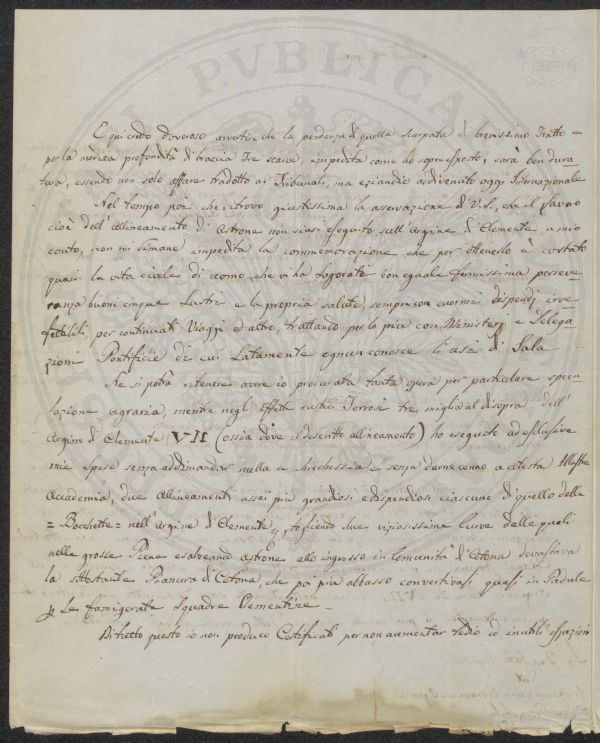 E qui credo doveroso avvertire che la pendenza di quella scarpata di brevissimo tratto e
per la modica profondità di braccia tre scarze, impedita come ho sopra esposto, sarà ben dura
tura, essendo non solo affare tradotto ai Tribunali, ma eziandio addivenuto oggi Internazionale
Nel tempo poi che ritrovo giustissima la osservazione di V.S., che il lavoro
cioè dell'Allineamento di Astrone non siasi eseguito sull'Argine di Clemente a mio
conto, non mi rimane impedita la commemorazione che per ottenerlo è costato
quasi la vita civile di uomo che vi ha logorate con eguale fermissima perseve
ranza buoni cinque Lustri e la propria salute, sempre con enormi dispendj irre
, per continuati Viaggi ed altro, trattando per lo più con Ministerj e Delega
zioni Pontificie di cui Latamente ognun conosce li di Sala
Ne si potrà ritenere avere io procurata tanta opera per particolare specu
lazione agraria, mentre negli Effetti rustici Terrosi tre miglia al disopra dell'
Argine di Clemente VII (ossia dove il descritto allineamento) ho eseguito ad esclusive
mie Spese senza addimandar nulla a chicchessia e senza darne cenno a cotesta Illustre
Accademia, due Allineamenti assai più grandiosi e dispendiosi ciascuno di quello delle
= Bocchette = nell'Argine di Clemente, togliendo due viziosissime Curve dalle quali
nelle grosse Piene Astrone allo ingresso in Comunità di Cetona devastava
la sottostante Pianura di Cetona, che poi più abbasso convertivasi quasi in Padule
p Le famigerate Squadre Clementine -
Di tutto questo io non produco Certificati per non aumentar tedio ed inutili
PUBLICA